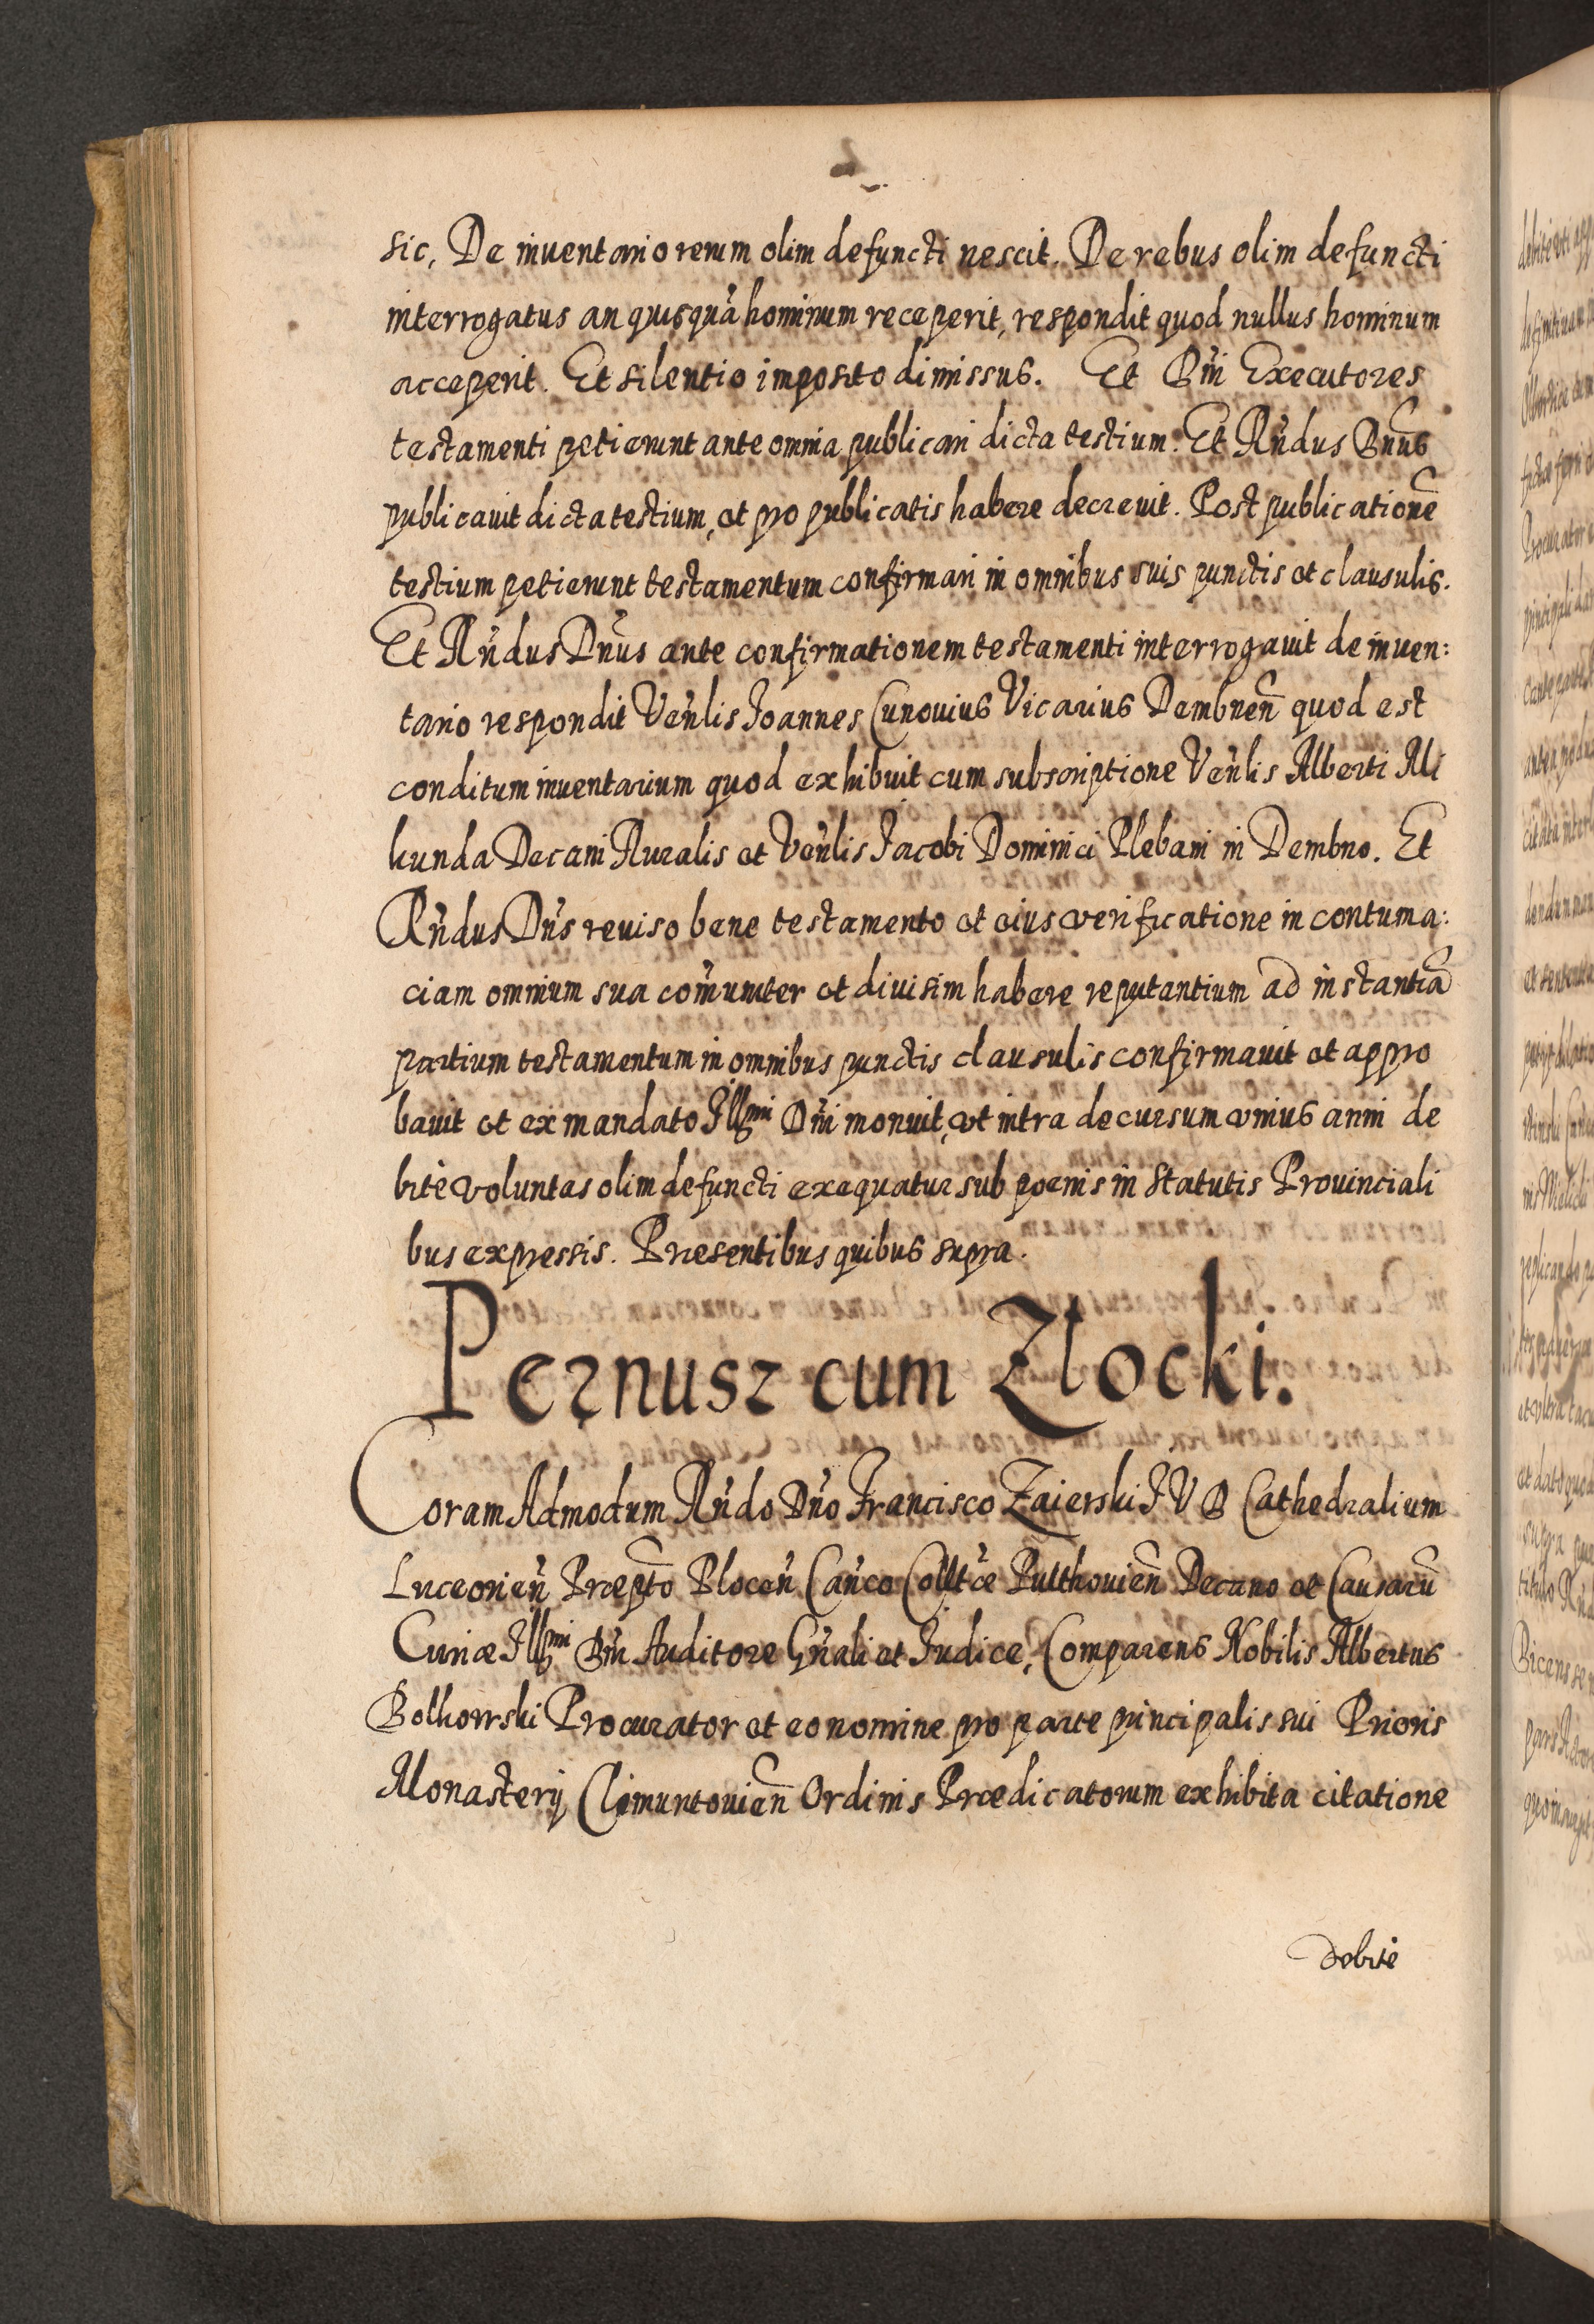 sic, De inventario rerum olim defuncti nescit. De rebus olim defuncti
interrogatus an quisquā hominum receperit, respondit quod nullus hominum
acceperit. Et silentio imposito dimissus. Et Dn̄i Executores
testamenti petierunt ante omnia publicari dicta testium. Et Rn̄dus Dnūs
publicavit dicta testium, et pro publicatis habere decrevit. Post publicationē
testium petierunt testamentum confirmari in omnibus suis punctis et clausulis.
Et Rn̄dus Dnūs ante confirmationem testamenti interrogavit de inven:
tario respondit Ven̄lis Joannes Cunovius Vicarius Dembnen̄ quod est
conditum inventarium quod exhibuit cum subscriptione Ven̄lis Alberti Mi
kunda Decani Ruralis et Ven̄lis Jacobi Dominici Plebani in Dembno. Et
Rn̄dus Dn̄s reviso bene testamento et eius verificatione in contuma:
ciam omnium sua com̄uniter et divisim habere reputantium ad instantiā
partium testamentum in omnibus punctis clausulis confirmavit et appro
bavit et ex mandato Illmi Dn̄i monuit, vt intra decursum vnius anni de
bitè voluntas olim defuncti exequatur sub poenis in Statutis Provinciali
bus expressis. Præsentibus quibus supra.
Pernusz cum Zlocki.
Coram Admodum Rn̄do Dn̄o Francisco Zaierski J V D Cathedralium
Luceorien̄ Præpt̄o Plocen̄ Can̄co Colltæ Pulthovien̄ Decano et Causarū
Curiæ Illmi Dn̄i Auditore Gn̄ali et Judice, Comparens Nobilis Albertus
Bolkowski Procurator et eo nomine pro parte principalis sui Prioris
Monasterij Climuntovien̄ Ordinis Prædicatorum exhibita citatione
debitè